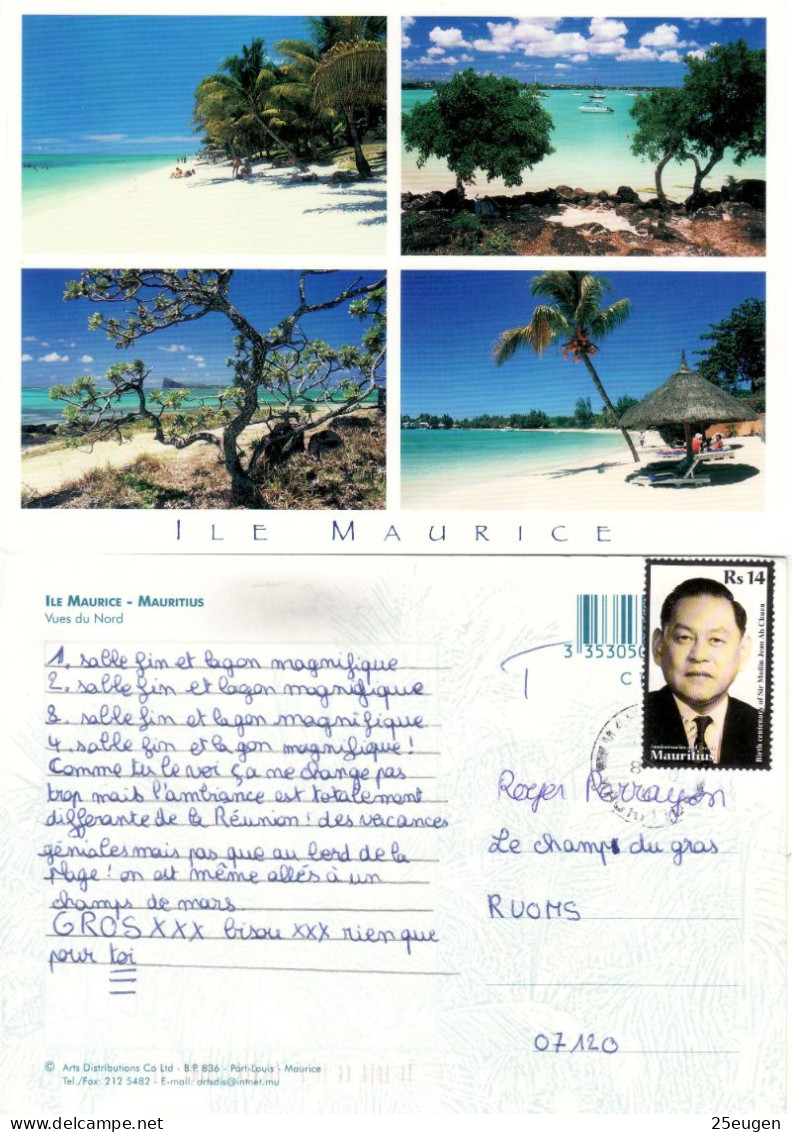 ILE MAURICE
ILE MAURICE - MAURITIUS
Vues du Nord
1. sable fin et lagon magnifique
2. sable fin et lagon magnifique
3. sable fin et lagon magnifique
4. sable fin et lagon magnifique !
Comme tu le voi ça ne change pas
trop mais l'ambiance est totalement
differante de la Réunion ! des vacances
géniales mais pas que au bord de la
plage ! on est même allés à un
champs de mars.
GROS XXX bisou xxx rien que
pour toi
© Arts Distributions Co Ltd - B.P. 836 - Port-Louis - Maurice
Tel./Fax: 212 5482 - E-mail: artsdis@intnet.mu
3 353050
C T
T
Rs 14
Birth centenary of Sir Moilin Jean Ah Chuen
Anniversaries and
Mauritius
Roger Parrayon
Le champ du gras
RUOMS
07120
25eugen